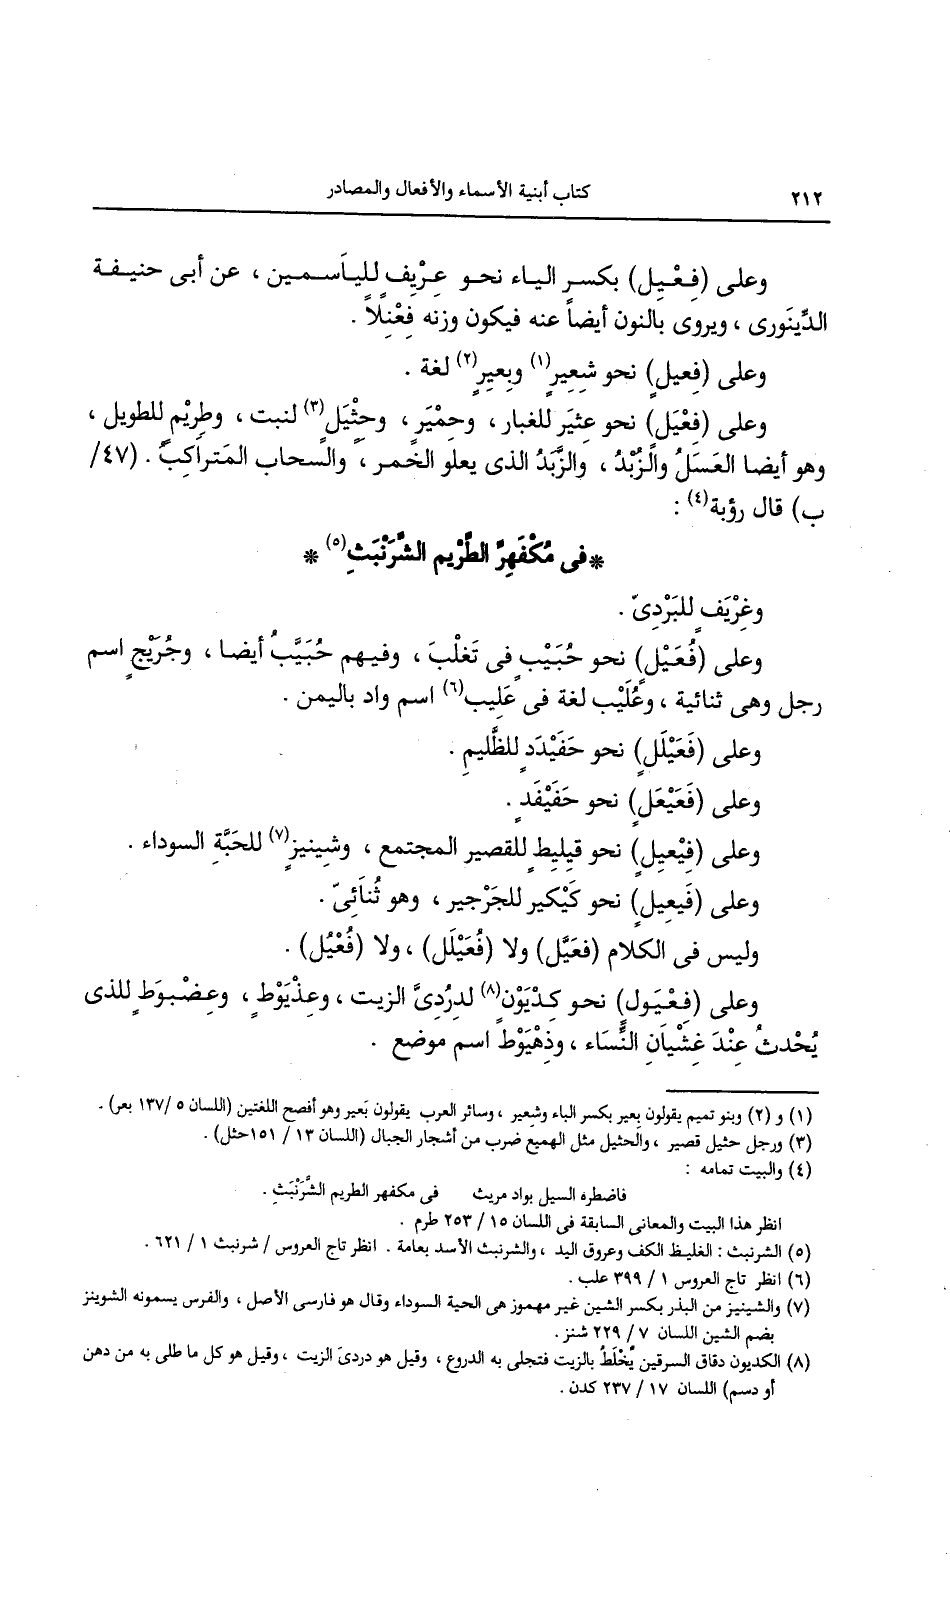 ٢١٢
كتاب أبنية الأسماء والأفعال والمصادر
وعلى (فِعْيِل) بكسر الياء نحو عِرْيِفٍ للياَسمين ، عن أبى حنيفة
الدِّينَورى ، ويروى بالنون أيضاً عنه فيكون وزنه فِعْنِلاً .
وعلى (فِعيلٍ) نحو شِعِيرٍ(١) وبِعيرٍ(٢) لغة .
وعلى (فِعْيَل) نحو عِثيَر للغبار ، وحِمْيَرٍ ، وحِثْيَلٍ(٣) لنبت ، وطِريْم للطويل ،
وهو أيضا العَسَلُ والزُّبْدُ ، والزَّبَدُ الذى يعلو الخمر ، والسحاب المتراكبُ . (٤٧/
ب) قال رؤبة(٤) :
* فى مُكْفَهِرِّ الطِّرْيم الشَّرَنْبَثِ(٥) *
وغِرْيَفٍ للبَرْدِىّ .
وعلى (فُعَيْلٍ) نحو حُبَيْبٍ فى تَغلْبَ ، وفيهم حُبَيَّبُ أيضا ، وجُرَيْجٍ اسم
رجل وهى ثنائية ، وعُلَيْب لغة فى عَلِيب(٦) اسم واد باليمن .
وعلى (فَعَيْلَلٍ) نحو حَفَيْدَدٍ للظَّليمِ .
وعلى (فَعَيْعَلٍ) نحو حَفَيْفَدٍ .
وعلى (فِيْعيلٍ) نحو قيلِيطٍ للقصير المجتمع ، وشِينيزٍ(٧) للحَبَّةِ السوداء .
وعلى (فَيعيلٍ) نحو كَيْكير للجَرْجير ، وهو ثُنَائِىّ .
وليس فى الكلام (فعَيَّل) ولا (فُعَيْلَل) ، ولا (فُعْيُل) .
وعلى (فِعْيَول) نحو كِدْيَوْنٍ(٨) لدِرُدِىَّ الزيت ، وعِذْيَوْطٍ ، وعِضْبوَطٍ للذى
يُحْدثُ عِنْدَ غِشْيَانِ النَّسَاء ، وذِهْيَوْط اسم موضع .
(١) و (٢) وبنو تميم يقولون بِعير بكسر الباء وشعير ، وسائر العرب يقولون بَعير وهو أفصح اللغتين (اللسان ٥ /١٣٧ بعر) .
(٣) ورجل حثيل قصير ، والحثيل مثل الهميع ضرب من أشجار الجبال (اللسان ١٣ / ١٥١حثل) .
(٤) والبيت تمامه :
فاضطره السيل بواد مريث فى مكفهر الطريم الشَّرَنْبَثِ .
انظر هذا البيت والمعانى السابقة فى اللسان ١٥ / ٢٥٣ طرم .
(٥) الشرنبث : الغليظ الكف وعروق اليد ، والشرنبث الأسد بعامة . انظر تاج العروس / شرنبث ١ / ٦٢١ .
(٦) انظر تاج العروس ١ / ٣٩٩ علب .
(٧) والشينيز من البذر بكسر الشين غير مهموز هى الحية السوداء وقال هو فارسى الأصل ، والفرس يسمونه الشوينز
بضم الشين اللسان ٧ / ٢٢٩ شنز .
(٨) الكديون دقاق السرقين يُخْلَطُ بالزيت فتجلى به الدروع ، وقيل هو دردىَ الزيت ، وقيل هو كل ما طلى به من دهن
أو دسم) اللسان ١٧ / ٢٣٧ كدن .